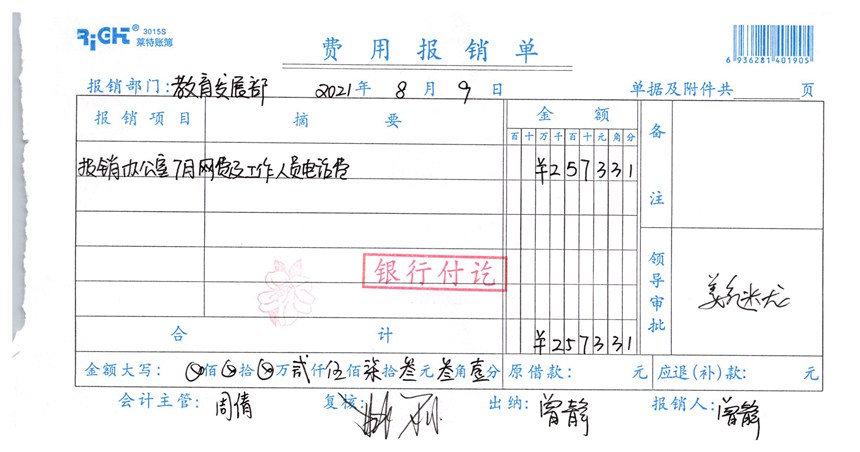 RiGHT® 3015S
莱特账簿
费用报销单
6 936281 401905
报销部门:教育发展部 2021年 8月 9日 单据及附件共 页
报销项目 摘要 金额 备注
百十万千百十元角分
报销办公室7月网费及工作人员电话费 ¥257331
银行付讫
领导审批
合计 ¥257331
金额大写: ⊗佰⊗拾⊗万贰仟伍佰柒拾叁元叁角壹分 原借款: 元 应退(补)款: 元
会计主管:周倩 复核: 出纳:曾静 报销人:曾静